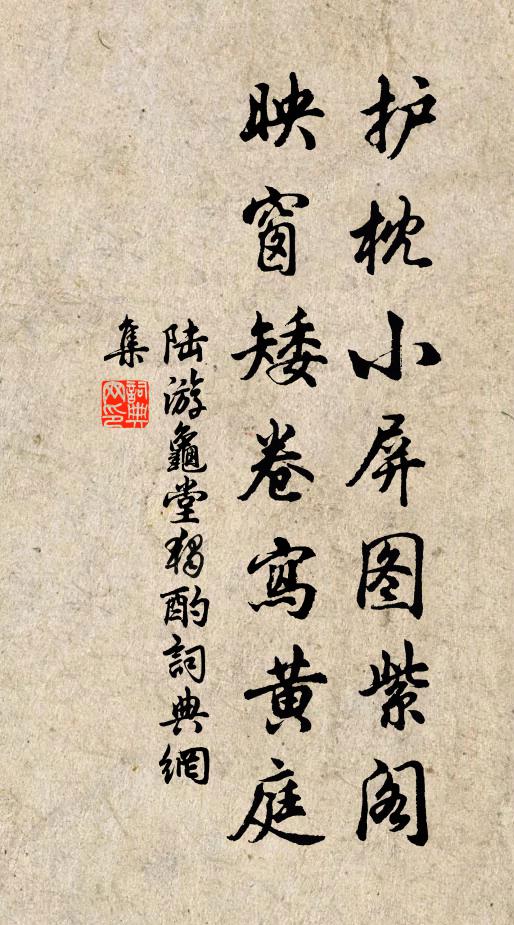 护枕小屏图紫阁
映窗矮卷写黄庭
陆游龜堂独酌詞典網
集
詞典
网印